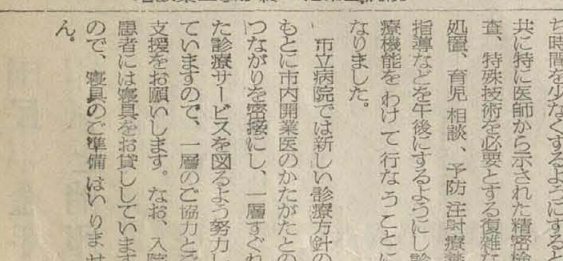 ち時間を少なくするようにすると
共に特に医師から示された精密検
査、特殊技術を必要とする復雑な
処置、育児相談、予防注射療養
指導などを午後にするようにし診
療機能をわけて行なうことに
なりました。
市立病院では新しい診療方針の
もとに市内開業医のかたがたとの
つながりを密接にし、一層すぐれ
た診療サービスを図るよう努力し
ていますので、一層のご協力とご
支援をお願いします。なお、入院
患者には寝具をお貸ししています
ので、寝具のご準備はいりませ
ん。